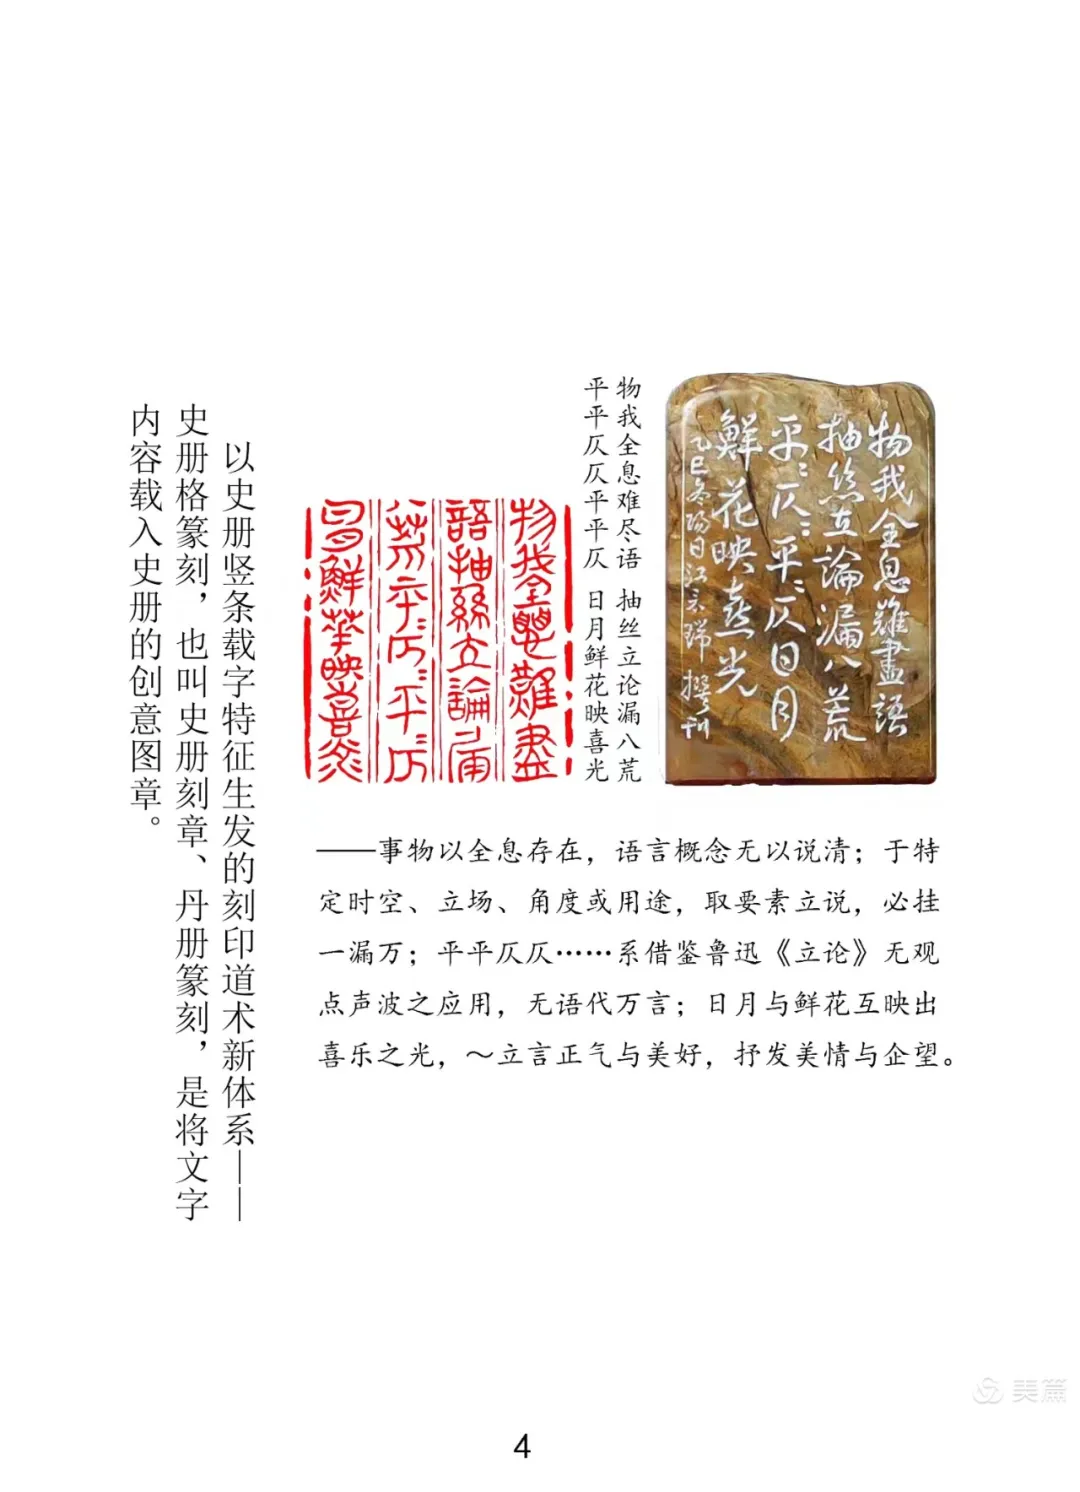 物我全息難盡語
抽絲立論漏八荒
平：仄：平：仄日月
鮮花映喜光
乙巳冬陽日江示瑞撰刊
物我全息难尽语 抽丝立论漏八荒
平平仄仄平平仄 日月鲜花映喜光
物我全息難盡
語抽絲立論漏
八荒平：仄：平：仄
日月鮮華映喜光
——事物以全息存在，语言概念无以说清；于特
定时空、立场、角度或用途，取要素立说，必挂
一漏万；平平仄仄……系借鉴鲁迅《立论》无观
点声波之应用，无语代万言；日月与鲜花互映出
喜乐之光，～立言正气与美好，抒发美情与企望。
以史册竖条载字特征生发的刻印道术新体系——
史册格篆刻，也叫史册刻章、丹册篆刻，是将文字
内容载入史册的创意图章。
美篇
4